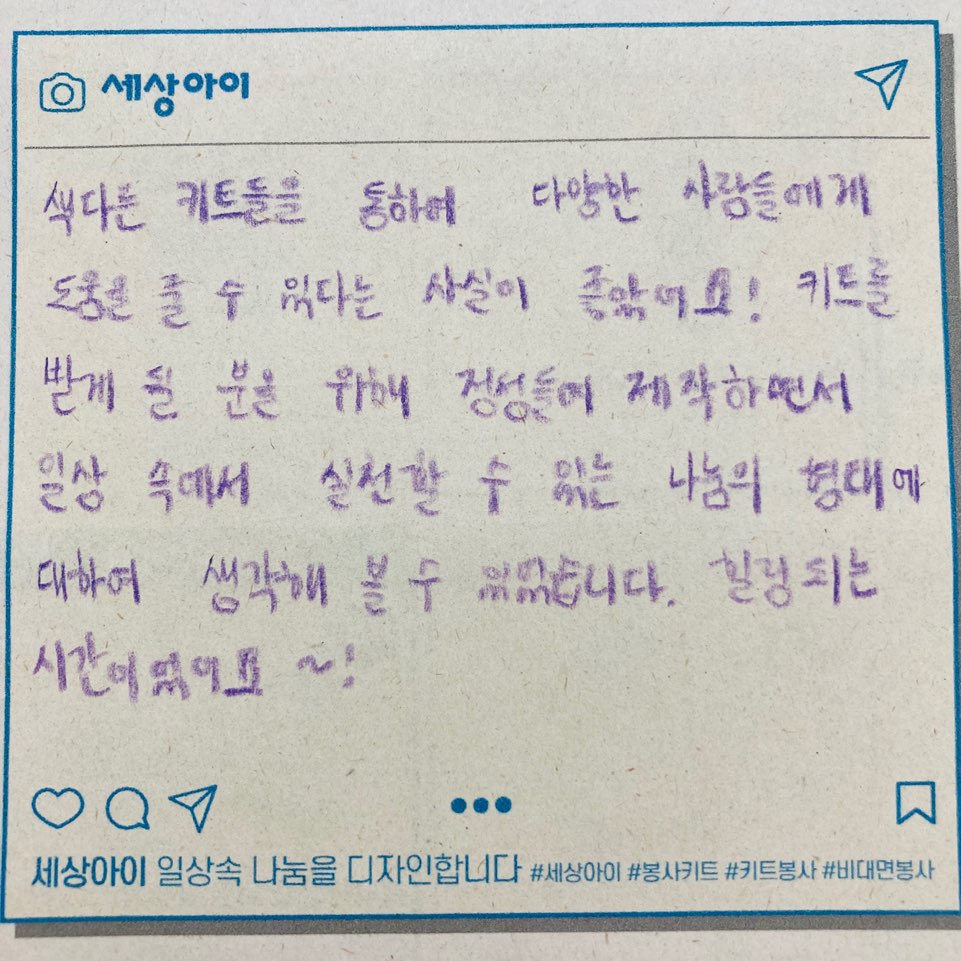 세상아이
색다른 키트들을 통하여 다양한 사람들에게
도움을 줄 수 있다는 사실이 좋았어요! 키트를
받게 될 분을 위해 정성들여 제작하면서
일상 속에서 실천할 수 있는 나눔의 형태에
대하여 생각해 볼 수 있었습니다. 힐링되는
시간이었어요 ~!
세상아이 일상속 나눔을 디자인합니다 #세상아이 #봉사키트 #키트봉사 #비대면봉사